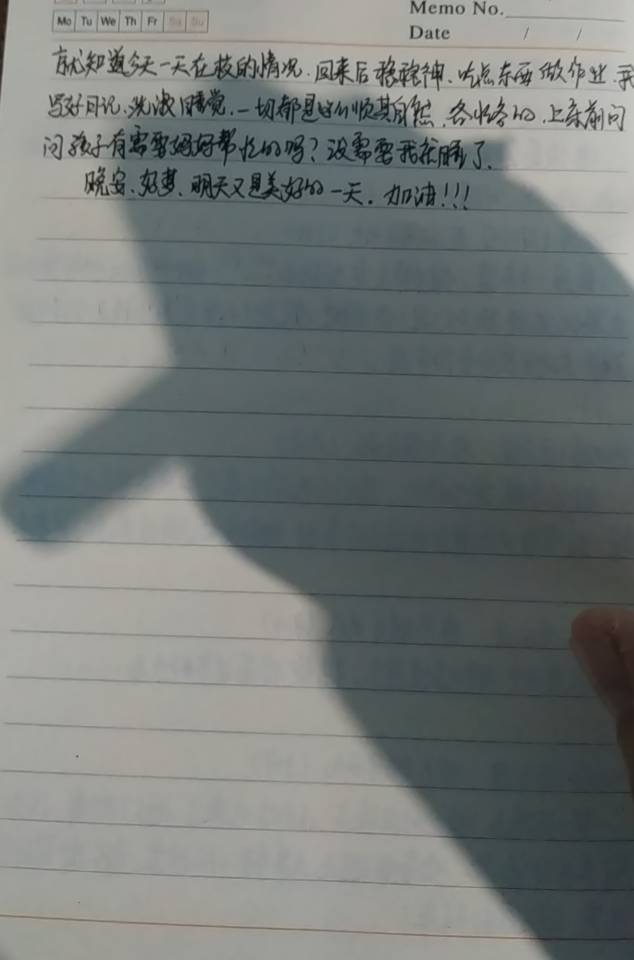 Memo No.
Mo Tu We Th Fr Sa Su
Date / /
就知道今天一天在校的情况.回来后稳稳神.吃点东西做作业.我
写好日记.洗漱睡觉.一切都是这么顺其自然.各忙各的.上床前问
问孩子有需要妈妈帮忙的吗?没需要我就睡了.
晚安.好梦.明天又是美好的一天.加油!!!